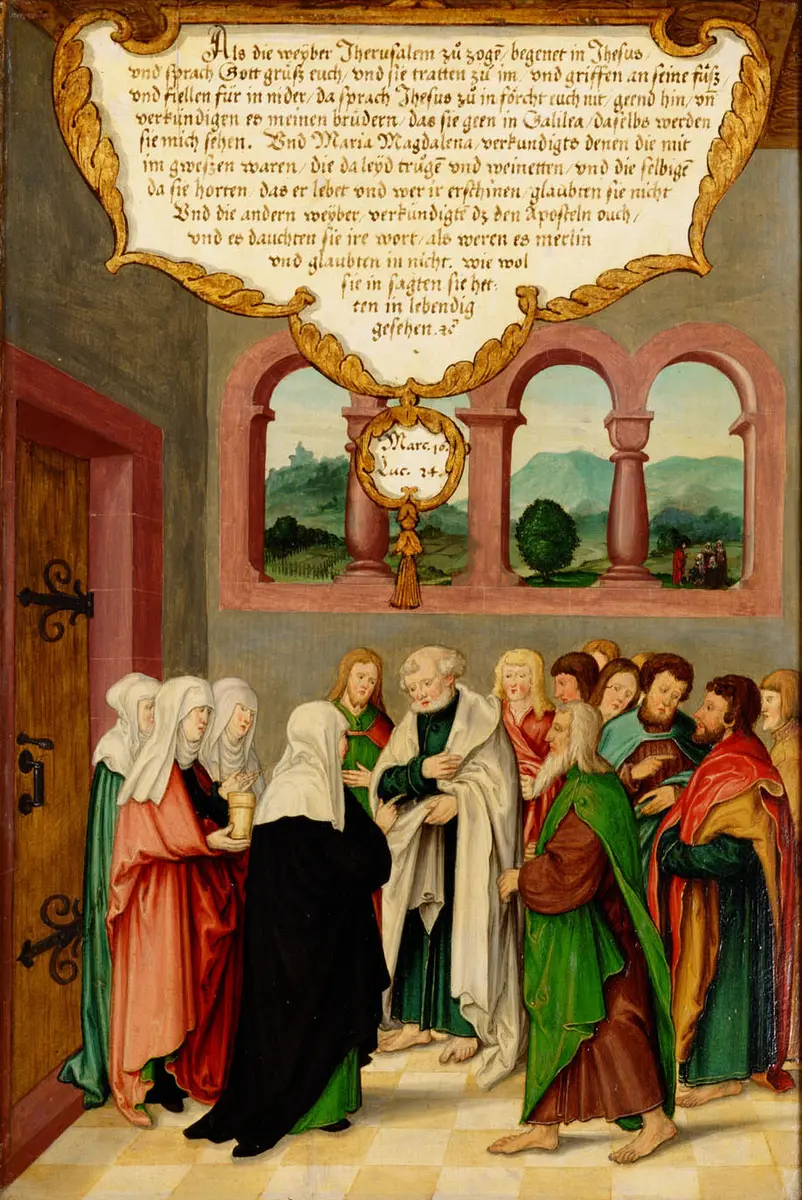 Als die weyber Jherusalem zů zogē, begenet in Jhesus,
vnd sprach Gott grüsz euch, vnd sie tratten zů im, vnd griffen an seine füsz,
vnd fiellen für in nider, da sprach Jhesus zů in förcht euch nit, geend hin, vn̄
verkündigen es meinen brüdern, das sie geen in Galilea, daselbs werden
sie mich sehen. Vnd Maria Magdalena, verkundigts denen die mit
im gweszen waren, die da leyd trůgē vnd weinetten, vnd die selbigē
da sie horten, das er lebet vnd wer ir erschinen, glaubten sie nicht
Vnd die andern weyber, verkündigtē dz den Aposteln ouch,
vnd es dauchten sie ire wort, als weren es merlin
vnd glaubten in nicht. wie wol
sie in sagten sie het:
ten in lebendig
gesehen. ꝛc
Marc. 16.
Luc. 24.